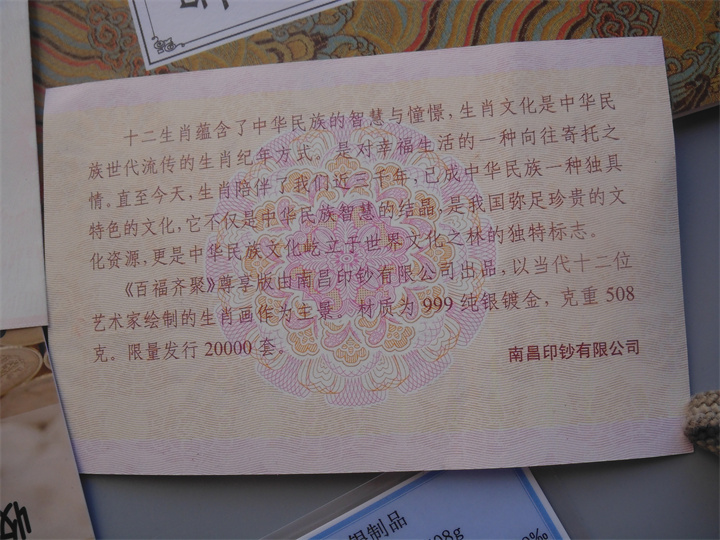 十二生肖蕴含了中华民族的智慧与憧憬，生肖文化是中华民
族世代流传的生肖纪年方式。是对幸福生活的一种向往寄托之
情。直至今天，生肖陪伴了我们近三千年，已成中华民族一种独具
特色的文化，它不仅是中华民族智慧的结晶，是我国弥足珍贵的文
化资源，更是中华民族文化屹立于世界文化之林的独特标志。
《百福齐聚》尊享版由南昌印钞有限公司出品，以当代十二位
艺术家绘制的生肖画作为主景。材质为 999 纯银镀金，克重 508
克。限量发行 20000 套。
南昌印钞有限公司
银制品
08g